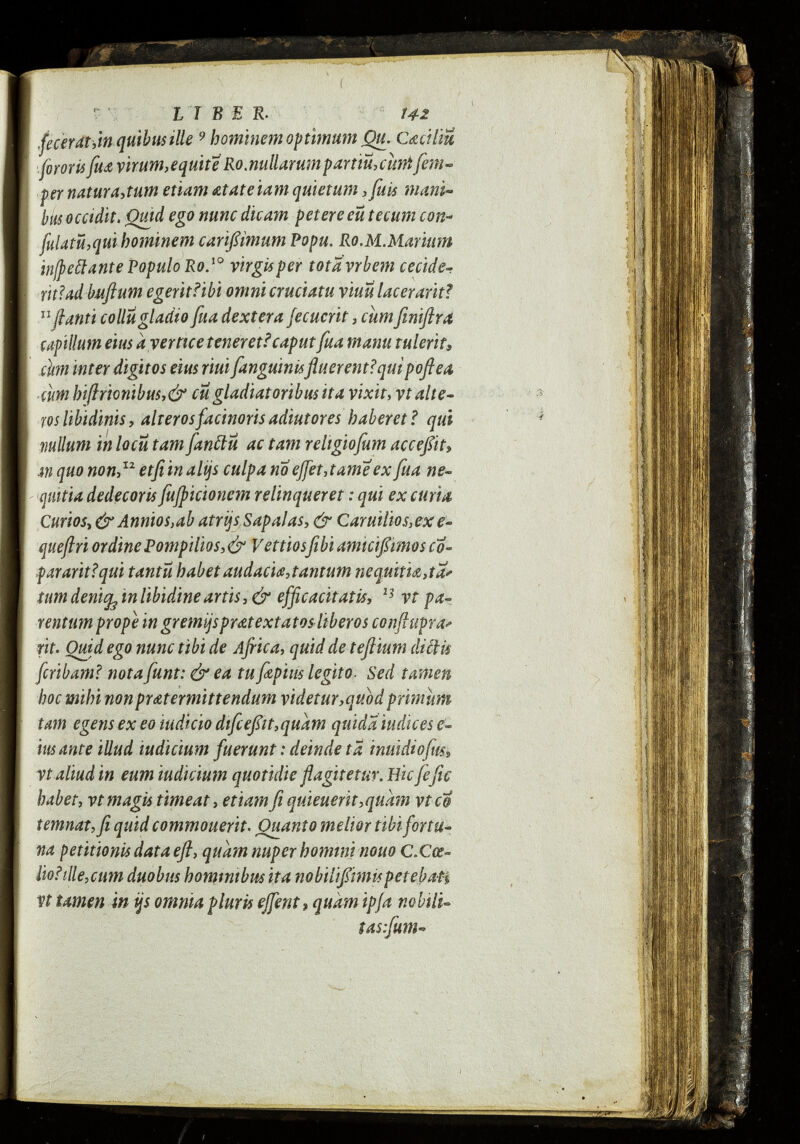 LIBER. 142
fecerat,in quibus ille ⁹ hominem optimum Qu. Cæciliũ
ſororis ſuæ virum,equitẽ Ro.nullarum partiũ,cùm ſem-
per natura,tum etiam ætate iam quietum, ſuis mani-
bus occidit. Quid ego nunc dicam petere eũ tecum con-
ſulatũ,qui hominem cariſsimum Popu. Ro.M.Marium
inſpectante Populo Ro.¹⁰ virgis per totã vrbem cecide-
rit?ad buſtum egerit?ibi omni cruciatu viuũ lacerarit?
¹¹ſtanti collũ gladio ſua dextera ſecuerit, cùm ſiniſtra
capillum eius à vertice teneret?caput ſua manu tulerit,
cùm inter digitos eius riui ſanguinis fluerent?qui poſtea
cùm hiſtrionibus,& cũ gladiatoribus ita vixit, vt alte-
ros libidinis, alteros facinoris adiutores haberet? qui
nullum in locũ tam ſanctũ ac tam religioſum acceſsit,
in quo non,¹² etſi in alijs culpa nõ eſſet,tamẽ ex ſua ne-
quitia dedecoris ſuſpicionem relinqueret: qui ex curia
Curios, & Annios,ab atrijs Sapalas, & Caruilios,ex e-
queſtri ordine Pompilios,& Vettios ſibi amiciſsimos cõ-
pararit?qui tantũ habet audaciæ,tantum nequitiæ,tã-
tum deniq; in libidine artis, & efficacitatis, ¹³ vt pa-
rentum propè in gremijs prætextatos liberos conſtupra-
rit. Quid ego nunc tibi de Africa, quid de teſtium dictis
ſcribam? nota ſunt: & ea tu ſæpius legito. Sed tamen
hoc mihi non prætermittendum videtur,quòd primùm
tam egens ex eo iudicio diſceſsit,quàm quidã iudices e-
ius ante illud iudicium fuerunt: deinde tã inuidioſus,
vt aliud in eum iudicium quotidie flagitetur. Hic ſe ſic
habet, vt magis timeat, etiam ſi quieuerit,quàm vt cõ
temnat,ſi quid commouerit. Quanto melior tibi fortu-
na petitionis data eſt, quàm nuper homini nouo C.Cœ-
lio?ille,cum duobus hominibus ita nobiliſsimis petebat,
vt tamen in ijs omnia pluris eſſent, quàm ipſa nobili-
tas:ſum-